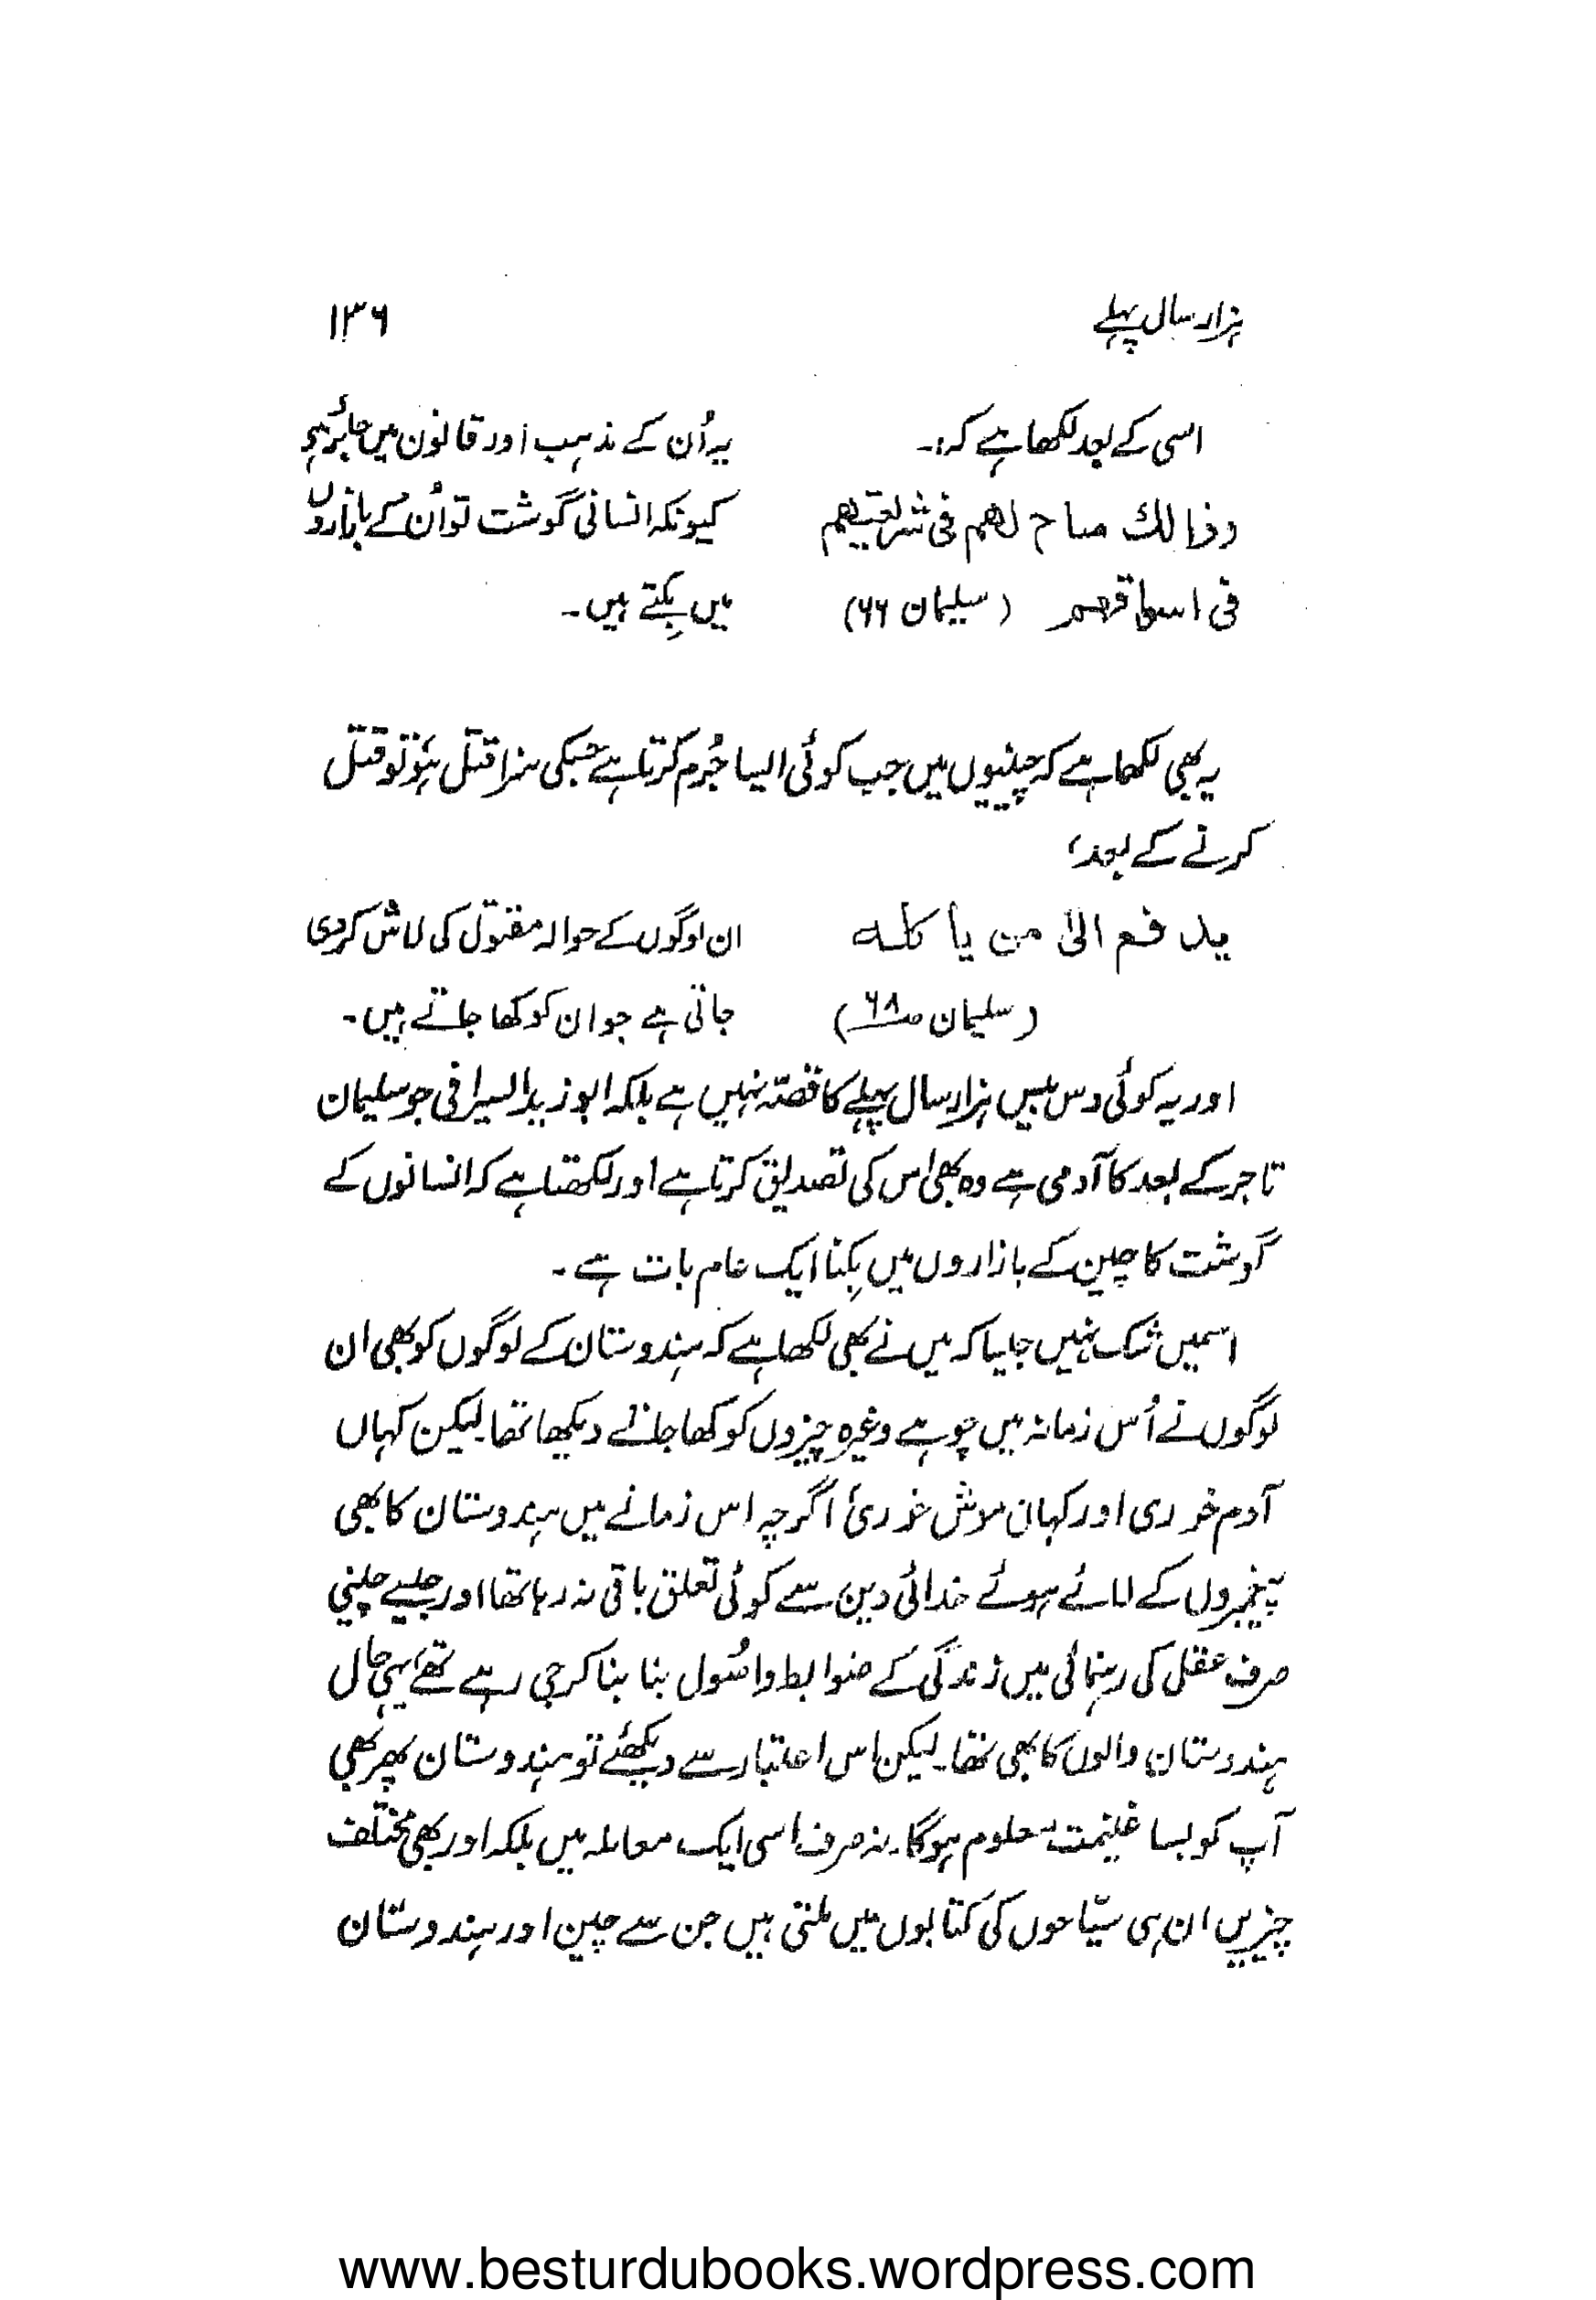 ہزار سال پہلے
۱۳۶
اسی کے بعد لکھا ہے کہ:۔
وذالك مباح لهم فی شریعتیهم
فی اسواقهم (سلیمان ۶۶)
یہ اُن کے مذہب اور قانون میں جائز ہے
کیونکہ انسانی گوشت تو اُن کے بازاروں
میں بِکتے ہیں۔
یہ بھی لکھا ہے کہ چینیوں میں جب کوئی ایسا جُرم کرتا ہے جسکی سزا قتل ہو تو قتل
کرنے کے بعد،
یدفع الیٰ من یاکله
(سلیمان ص۶۸)
ان لوگوں کے حوالہ مقتول کی لاش کردی
جاتی ہے جو ان کو کھا جاتے ہیں۔
اور یہ کوئی دس بیس ہزار سال پہلے کا قصّہ نہیں ہے بلکہ ابوزید السیرافی جو سلیمان
تاجر کے بعد کا آدمی ہے وہ بھی اس کی تصدیق کرتا ہے اور لکھتا ہے کہ انسانوں کے
گوشت کا چین کے بازاروں میں بِکنا ایک عام بات ہے۔
اسمیں شک نہیں جیسا کہ میں نے بھی لکھا ہے کہ ہندوستان کے لوگوں کو بھی ان
لوگوں نے اُس زمانہ میں چوہے وغیرہ چیزوں کو کھا جاتے دیکھا تھا۔ لیکن کہاں
آدم خوری اور کہان موش خوری اگرچہ اس زمانے میں ہندوستان کا بھی
پیغمبروں کے لائے ہوئے خدائی دین سے کوئی تعلق باقی نہ رہا تھا اور جیسے چینی
صرف عقل کی رہنمائی میں زندگی کے ضوابط واصُول بنا بنا کر جی رہے تھے یہی حال
ہندوستان والوں کا بھی تھا۔ لیکن اس اعتبار سے دیکھئے تو ہندوستان پھر بھی
آپ کو بسا غنیمت معلوم ہوگا۔ نہ صرف اسی ایک معاملہ میں بلکہ اور بھی مختلف
چیزیں ان ہی سیّاحوں کی کتابوں میں ملتی ہیں جن سے چین اور ہندوستان
www.besturdubooks.wordpress.com